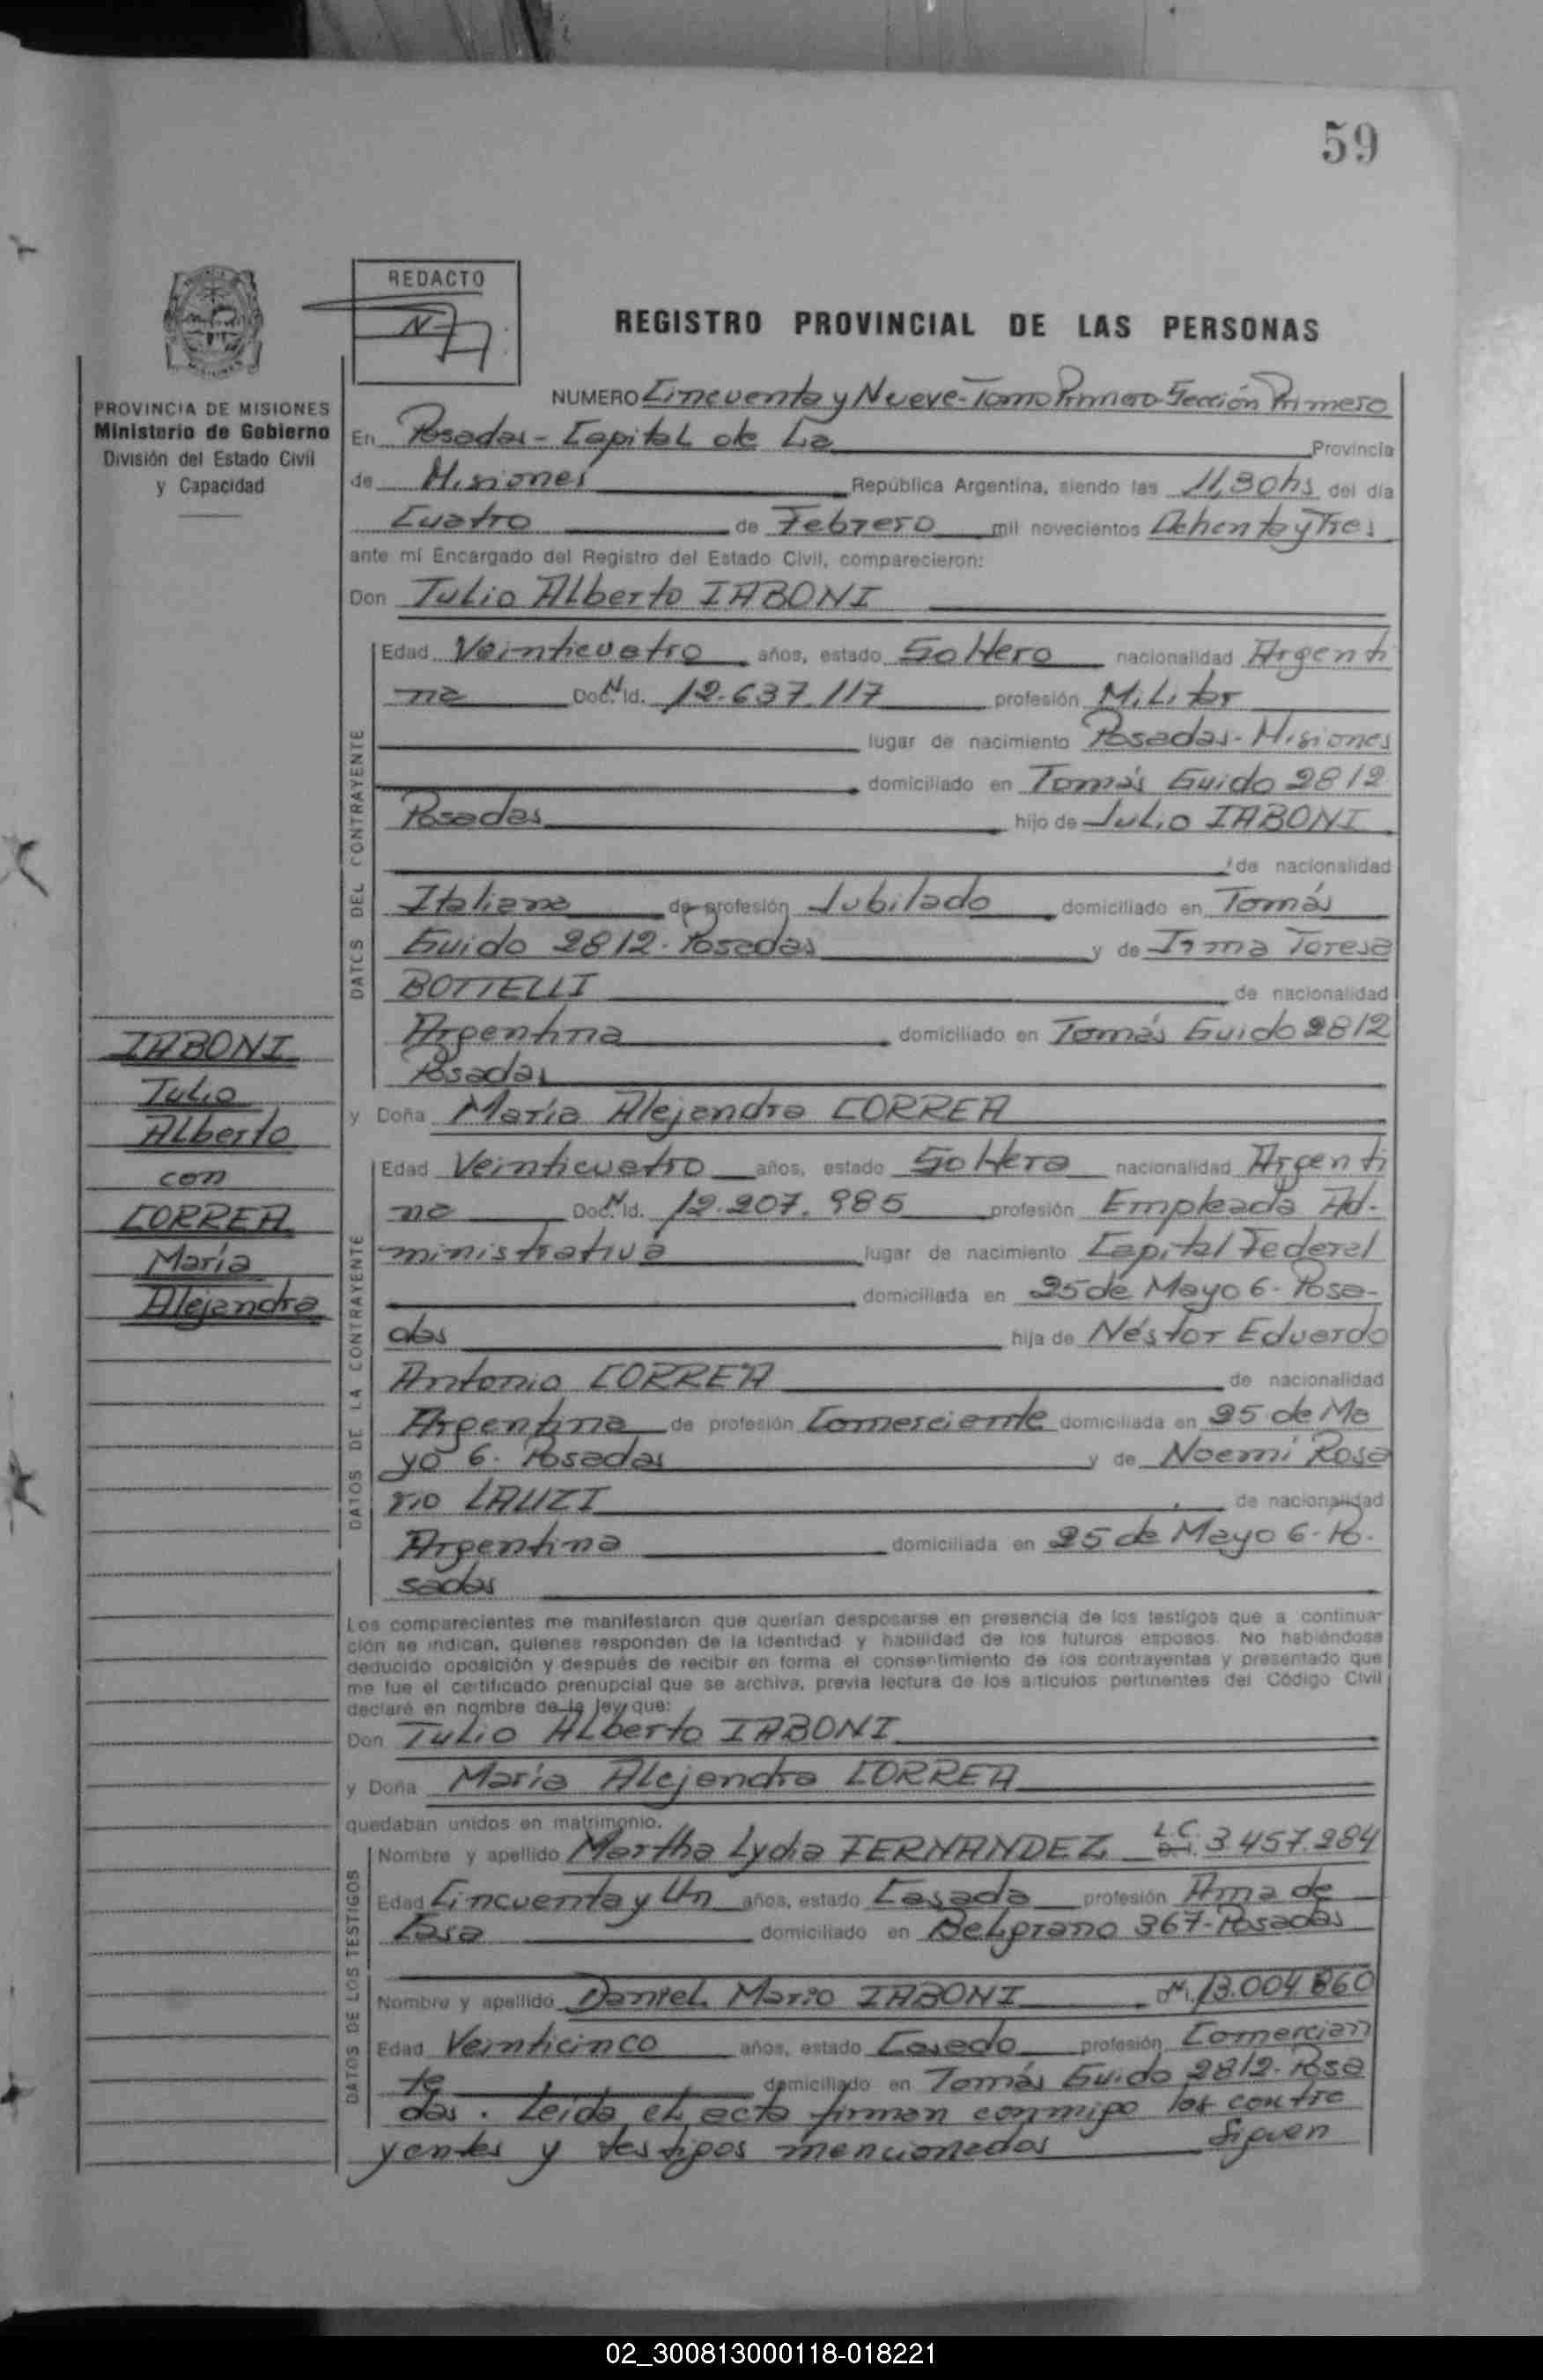 59
REDACTO
REGISTRO PROVINCIAL DE LAS PERSONAS
PROVINCIA DE MISIONES
Ministerio de Gobierno
División del Estado Civil
y Capacidad
NUMERO Cincuenta y Nueve-Tomo Primero-Sección Primera
En Posadas - Capital de La Provincia
de Misiones República Argentina, siendo las 11,30hs del día
Cuatro de Febrero mil novecientos Ochenta y Tres
ante mí Encargado del Registro del Estado Civil, comparecieron:
Don Tulio Alberto IABONI
DATOS DEL CONTRAYENTE
Edad Veinticuatro años, estado Soltero nacionalidad Argenti
na Doc. N. Id. 12.637.117 profesión Militar
lugar de nacimiento Posadas-Misiones
domiciliado en Tomás Guido 2812
Posadas hijo de Julio IABONI
de nacionalidad
Italiana de profesión Jubilado domiciliado en Tomás
Guido 2812. Posadas y de Irma Teresa
BOTTELLI de nacionalidad
Argentina domiciliado en Tomás Guido 2812
Posadas
IABONI
Tulio
Alberto
con
CORREA
María
Alejandra
y Doña María Alejandra CORREA
DATOS DE LA CONTRAYENTE
Edad Veinticuatro años, estado Soltera nacionalidad Argenti
na Doc. N. Id. 12.207.985 profesión Empleada Ad-
ministrativa lugar de nacimiento Capital Federal
domiciliada en 25 de Mayo 6- Posa-
das hija de Néstor Eduardo
Antonio CORREA de nacionalidad
Argentina de profesión Comerciante domiciliada en 25 de Ma
yo 6. Posadas y de Noemí Rosa
rio LAUZI de nacionalidad
Argentina domiciliada en 25 de Mayo 6-Po.
sadas
Los comparecientes me manifestaron que querían desposarse en presencia de los testigos que a continua-
ción se indican, quienes responden de la identidad y habilidad de los futuros esposos. No habiéndose
deducido oposición y después de recibir en forma el consentimiento de los contrayentes y presentado que
me fue el certificado prenupcial que se archiva, previa lectura de los artículos pertinentes del Código Civil
declaré en nombre de la ley que:
Don Tulio Alberto IABONI
y Doña María Alejandra CORREA
quedaban unidos en matrimonio.
DATOS DE LOS TESTIGOS
Nombre y apellido Martha Lydia FERNANDEZ L.C. 3.457.284
Edad Cincuenta y Un años, estado Casada profesión Ama de
Casa domiciliado en Belgrano 367-Posadas
Nombre y apellido Daniel Mario IABONI 13.004.860
Edad Veinticinco años, estado Casado profesión Comercian
te domiciliado en Tomás Guido 2812-Posa
das. Leida el acta firman conmigo los contra
yentes y testigos mencionados Siguen
02_300813000118-018221